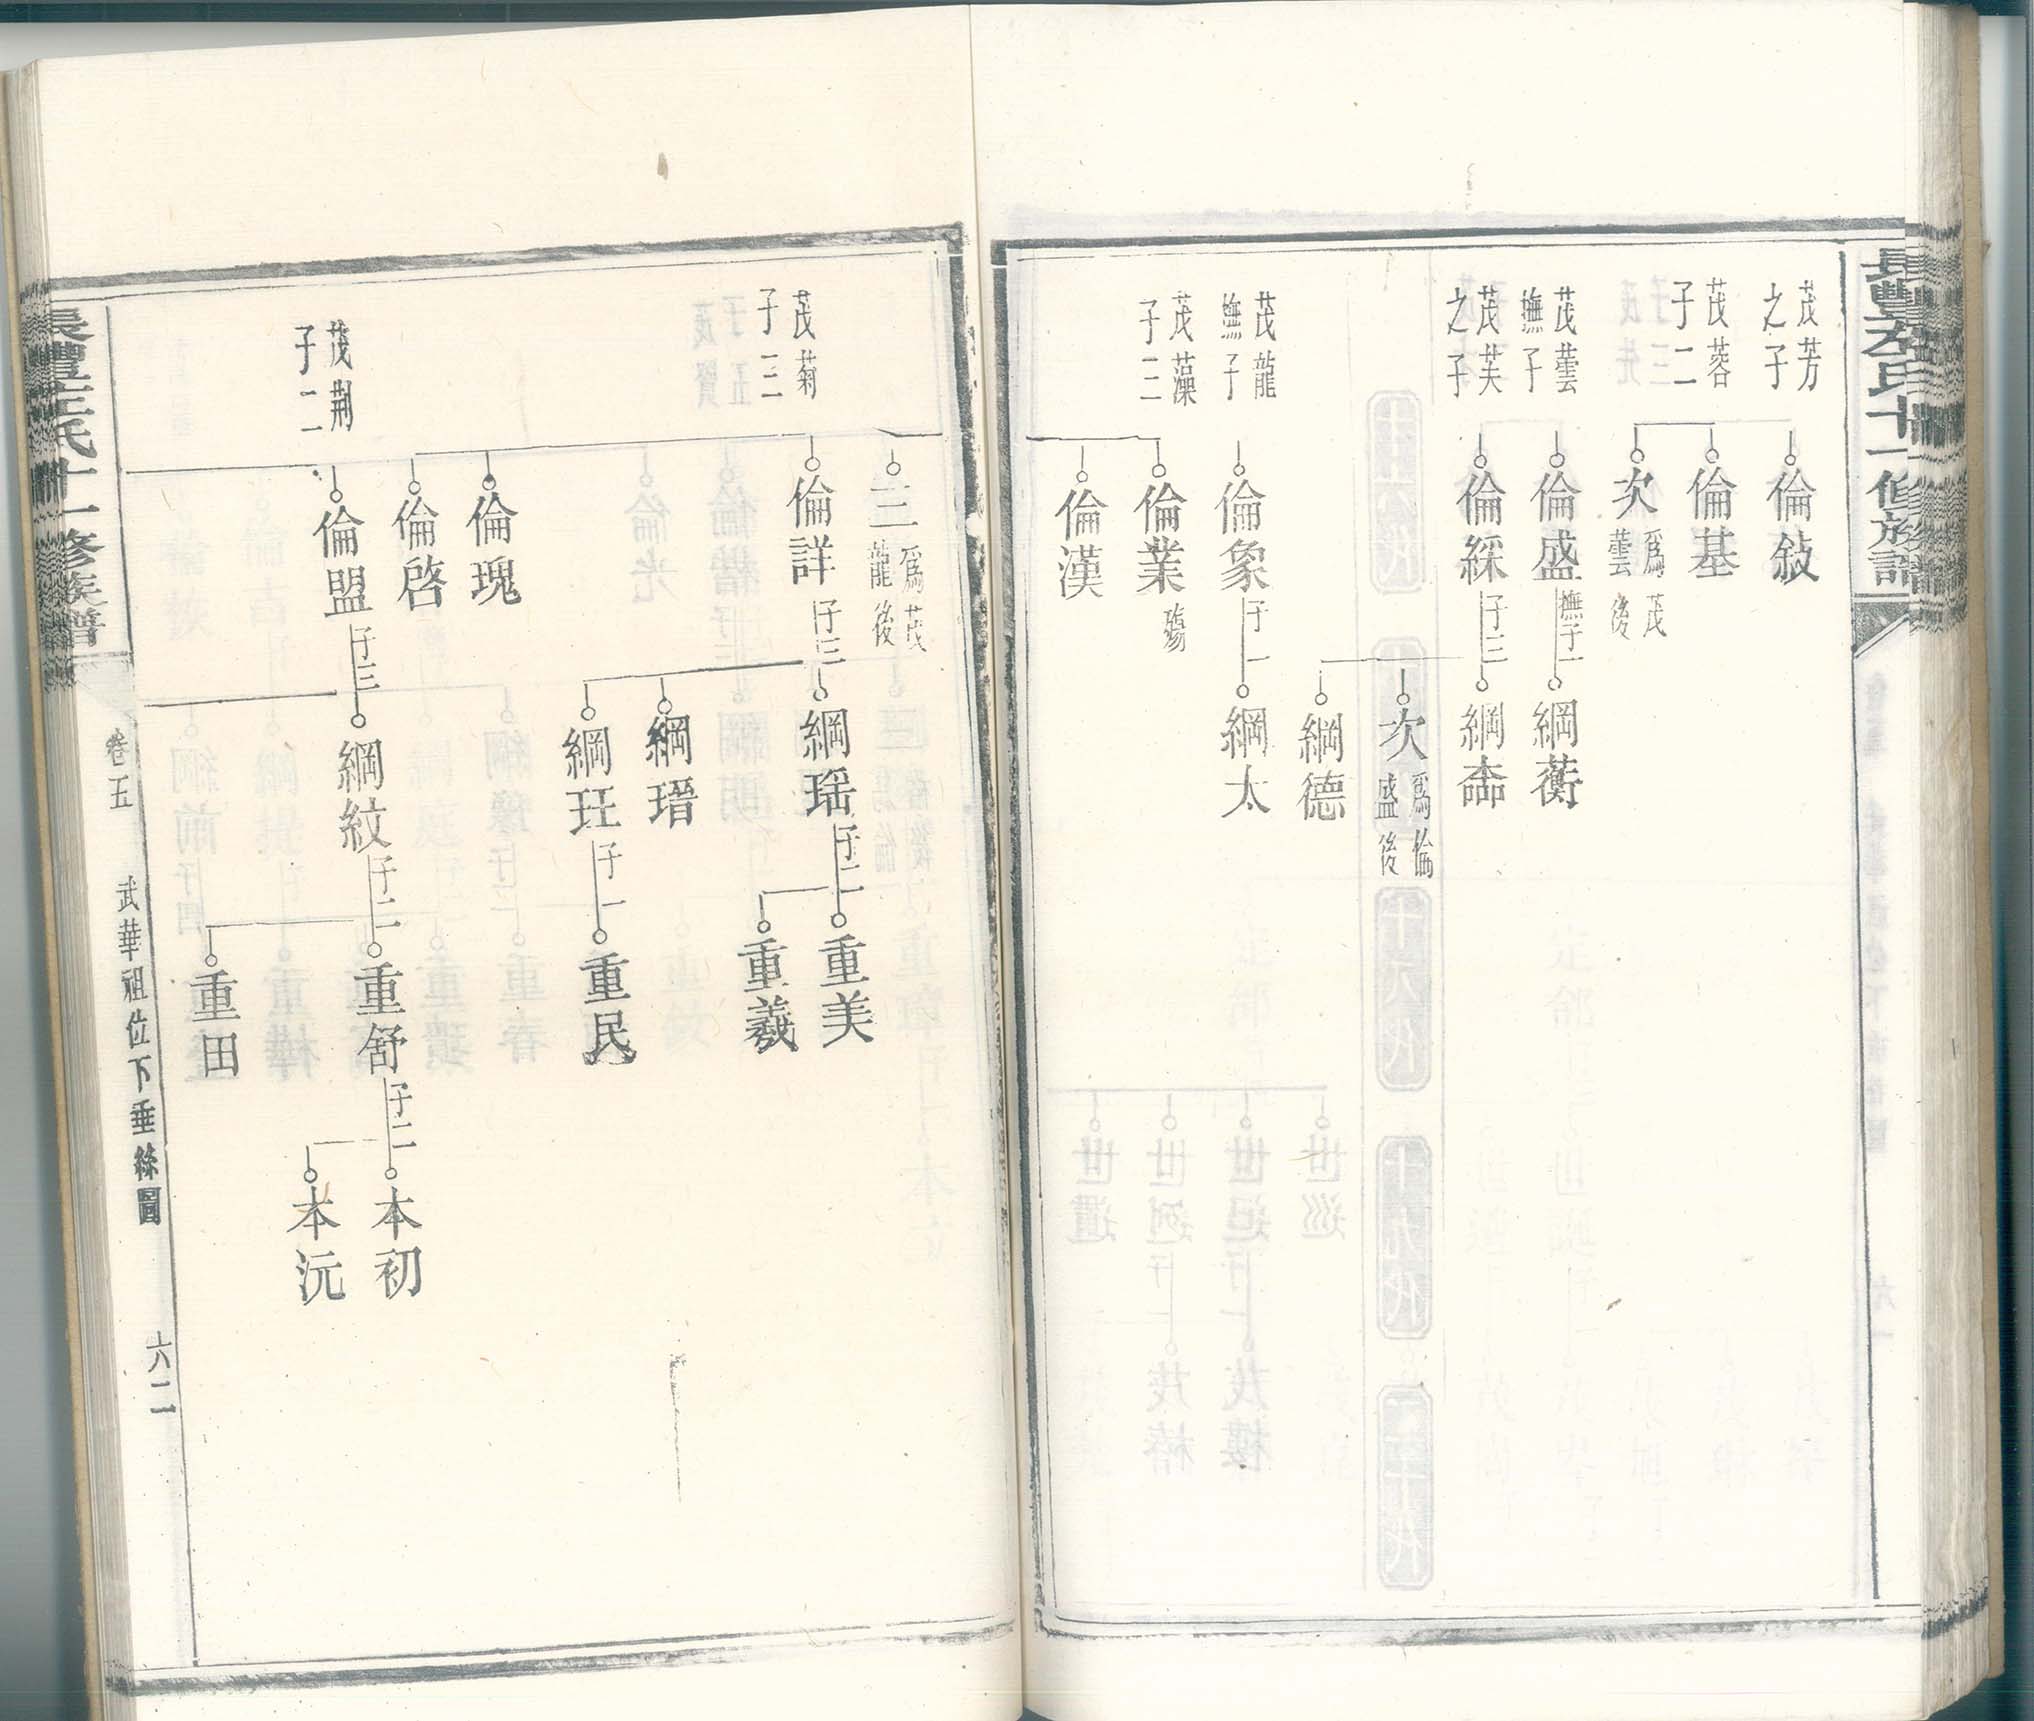 茂芳之子
倫敍
茂蓉子二
倫基
次爲茂蕓後
茂蕓撫子
倫盛撫子一
綱蘅
茂芙之子
倫綵子三
綱斋
次爲倫盛後
綱德
茂蘢撫子
倫象子一
綱太
茂藻子三
倫業殤
倫漢
三爲茂蘢後
茂菊子三
倫詳子三
綱瑶子二
重美
重羲
綱瑨
綱玨子一
重民
倫瑰
倫啓
茂荆子二
倫盟子三
綱紋子二
重舒子二
本初
本沅
重田
十一修族譜
卷五
武華祖位下垂絲圖
六二